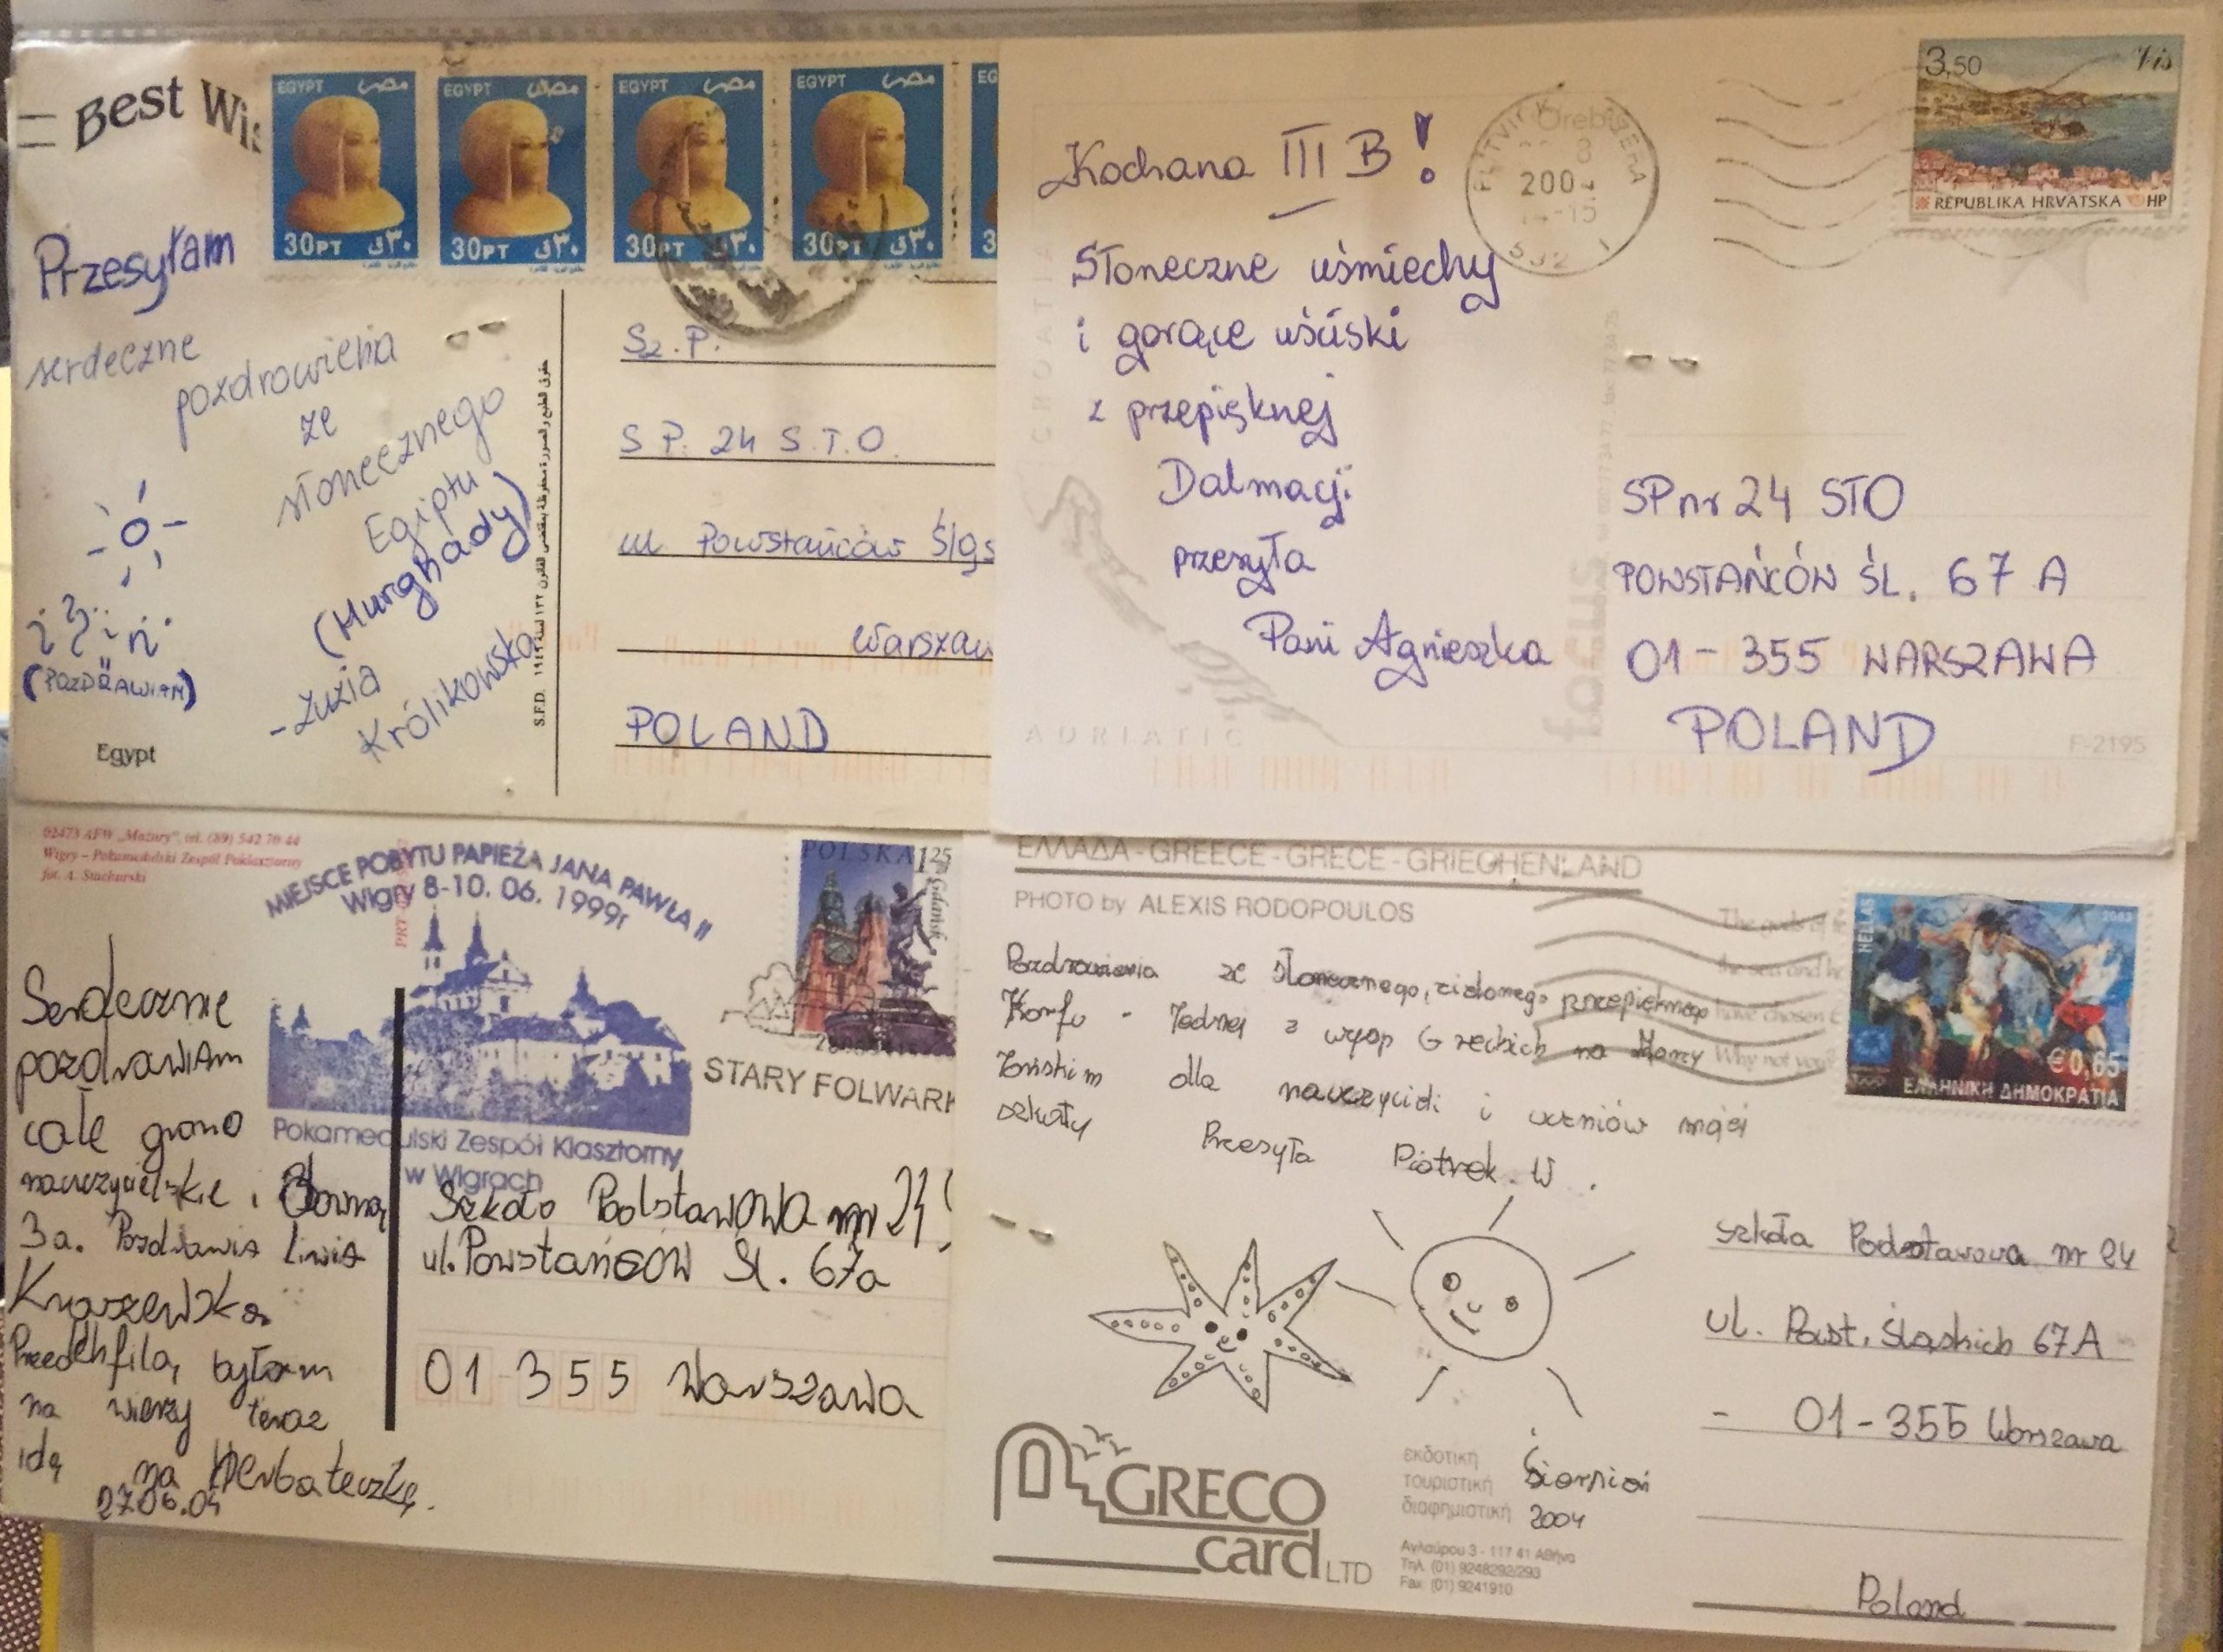 Best Wis
EGYPT مصر
30PT ٣٠ق
EGYPT مصر
30PT ٣٠ق
EGYPT مصر
30PT ٣٠ق
EGYPT مصر
30PT ٣٠ق
EG
3
Przesyłam
serdeczne
pozdrowienia
ze
słonecznego
Egiptu
(Hurghady)
-Zuzia
Królikowska
(POZDRAWIAM)
Egypt
S.F.D.
Sz. P.
S P. 24 S.T.O.
ul Powstańców Śląs
Warszaw
POLAND
Kochana III B!
Słoneczne uśmiechy
i gorące uściski
z przepięknej
Dalmacji
przesyła
Pani Agnieszka
CROATIA
ADRIATIC
200
3,50 Vis
REPUBLIKA HRVATSKA HP
focus
SP nr 24 STO
POWSTAŃCÓW ŚL. 67 A
01-355 WARSZAWA
POLAND
F-2195
02473 AFW „Mazury", tel. (89) 542 70 44
Wigry - Pokamedulski Zespół Poklasztorny
fot. A. Stachurski
MIEJSCE POBYTU PAPIEŻA JANA PAWŁA II
Wigry 8-10. 06. 1999r
Pokamedulski Zespół Klasztorny
w Wigrach
POLSKA 1 25
Gdańsk
STARY FOLWARK
Serdecznie
pozdrawiam
całe grono
nauczycielskie i
3a. Pozdrawia Liwia
Kraszewska
Przed chfilą byłam
na wierzy teraz
idę na Herbateczkę.
27.06.04
Szkoła Podstawowa nr 24
ul. Powstańców Śl. 67a
01-355 Warszawa
ΕΛΛΑΔΑ - GREECE - GRECE - GRIECHENLAND
PHOTO by ALEXIS RODOPOULOS
The gods of
the sea and
have chosen
Why not you?
HELLAS 2003
€0,65
ΕΛΛΗΝΙΚΗ ΔΗΜΟΚΡΑΤΙΑ
Pozdrowienia ze słonecznego, zielonego przepięknego
Korfu - Jednej z wysp Greckich na Morzy
Jońskim dla nauczycieli i uczniów mojej
szkoły Przesyła Piotrek W.
szkoła Podstawowa nr 24
ul. Powst. Śląskich 67A
- 01-355 Warszawa
Poland
GRECO
card LTD
εκδοτική
τουριστική
διαφημιστική
Sierpień
2004
Αγλαύρου 3 - 117 41 Αθήνα
Τηλ. (01) 9248292/293
Fax: (01) 9241910